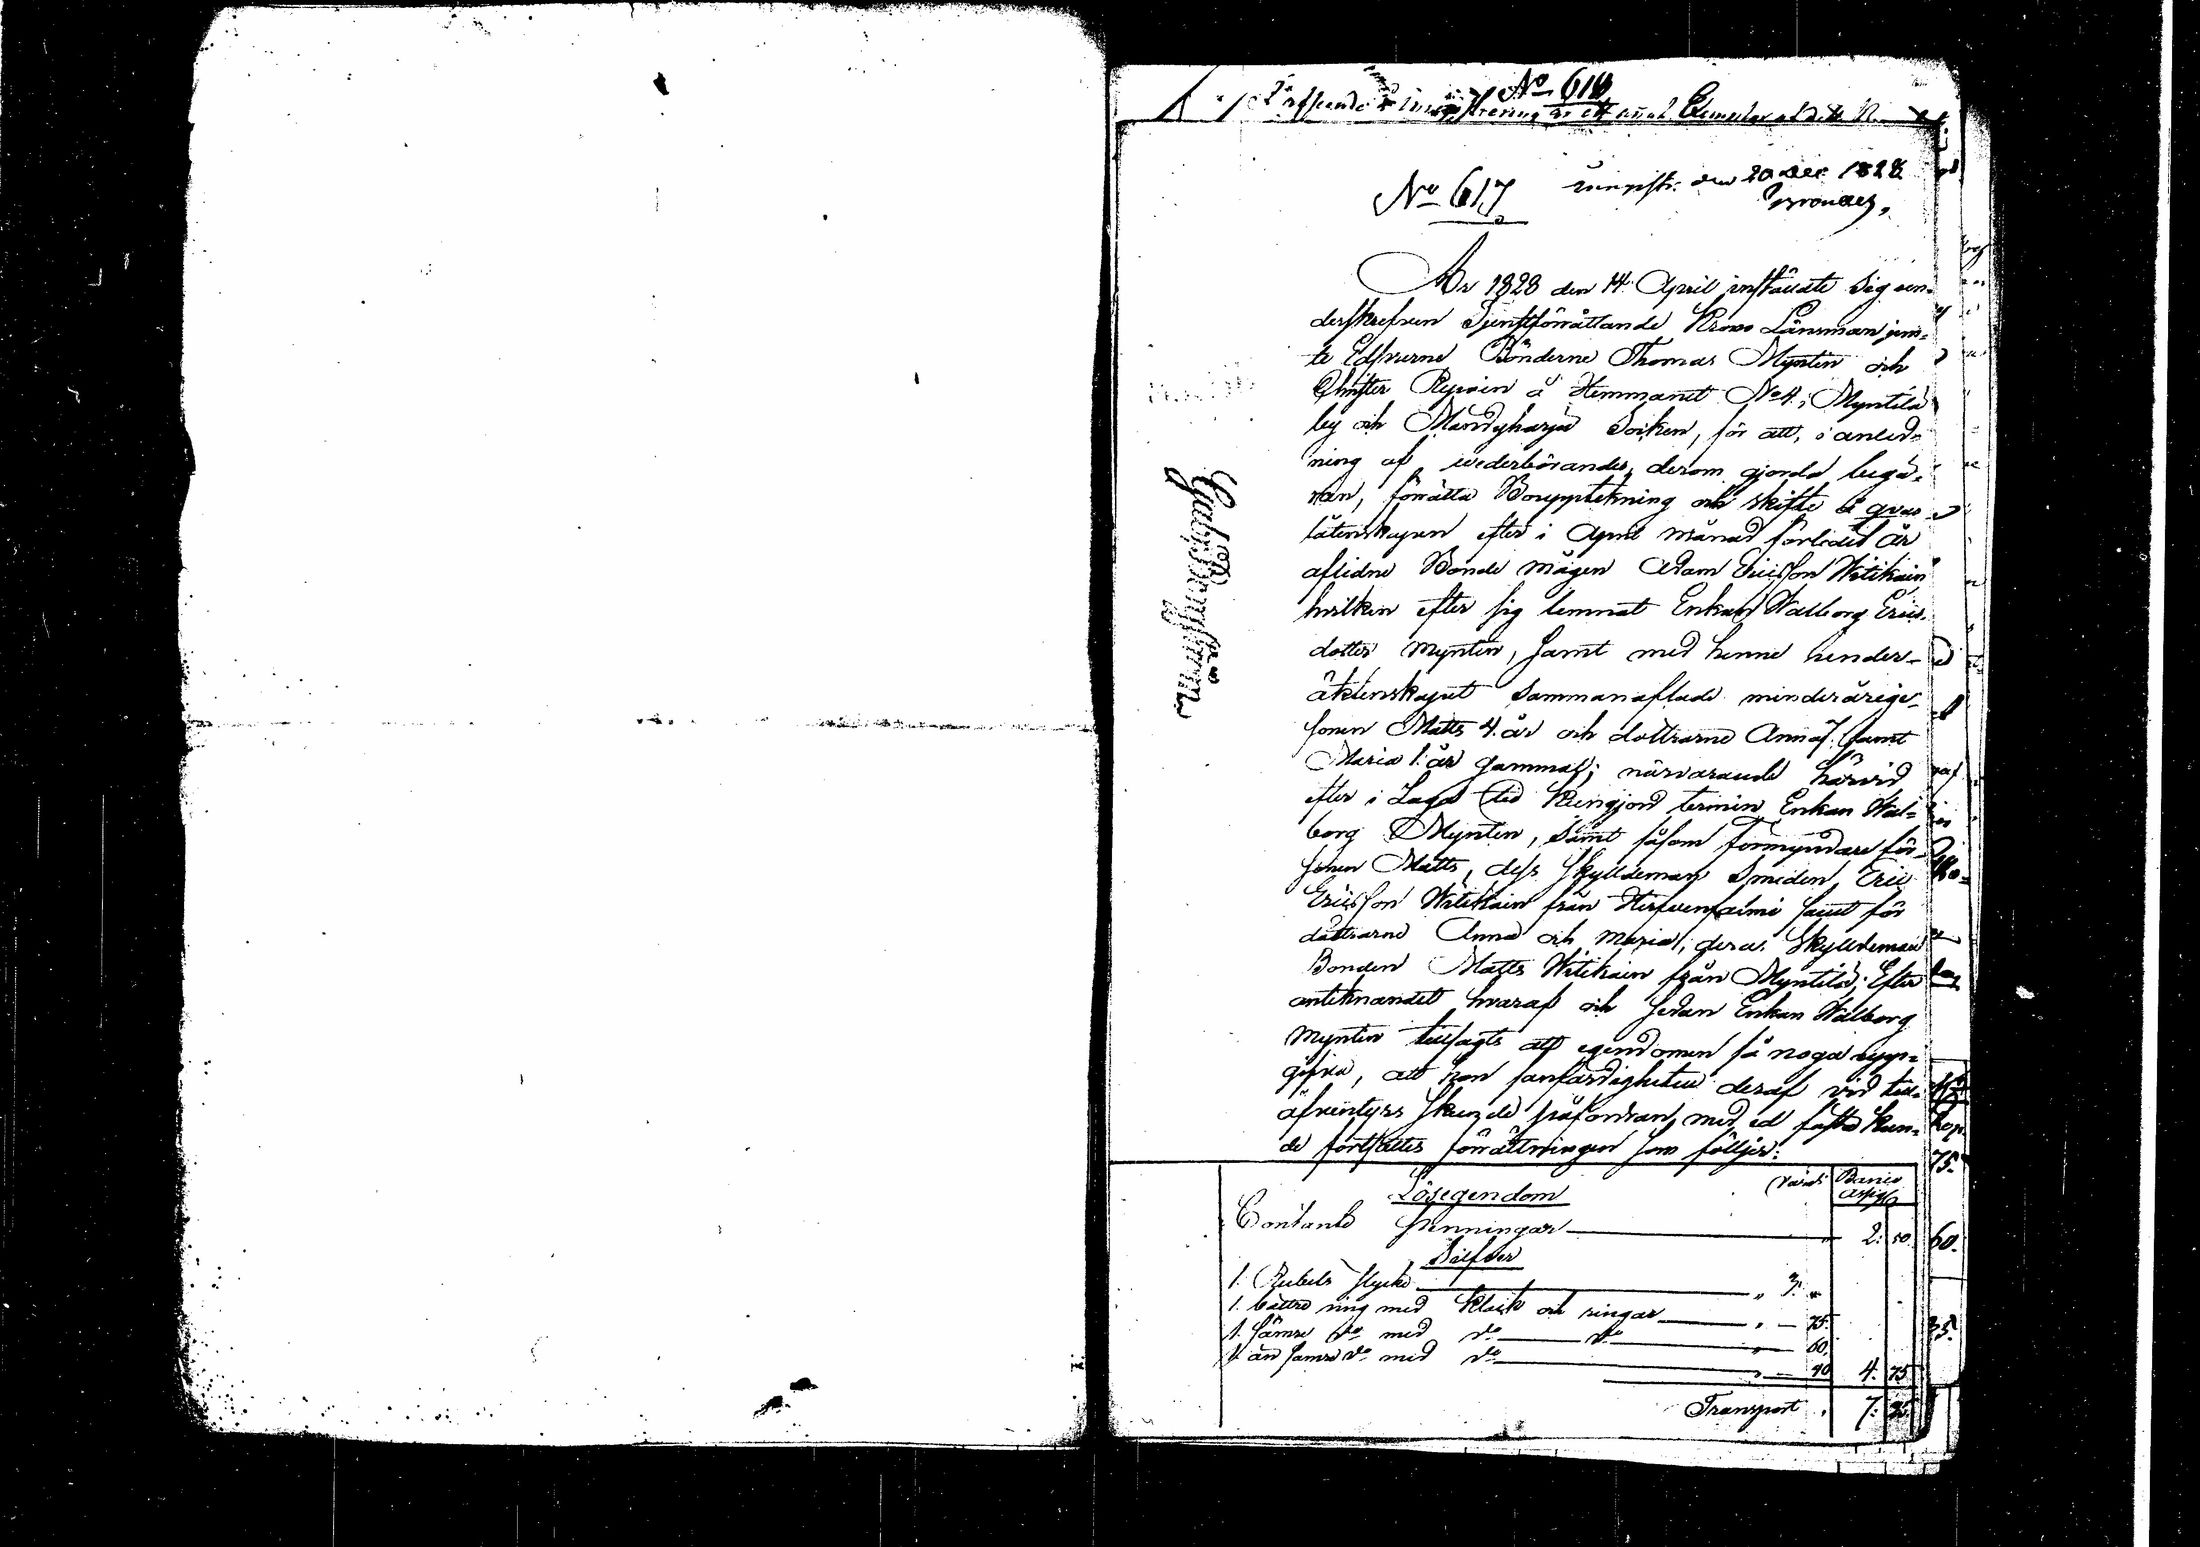 No 616
No 617
den 20 Dec 1828
År 1828 den 14 April inställde sig un-
derskrefven Tjenstförrättande Krono Länsman jem-
te Edsvurne Bönderne Thomas Myntin och
Christer Repoin å Hemmanet No 4 i Myntilä
by och Mändyharju Soiken, för att, i anled-
ning af wederbörandes derom gjorda begä-
ran, förrätta Bouppteckning och skifte å qvar-
låtenskapen efter i April månad förledit år
aflidne Bonde mågen Adam Ericsson Witikain
hvilken efter sig lemnat Enkan Walborg Erics
dotter Myntin, samt med henne under
äktenskapet sammanaflade minderårige
sonen Matts 4 år och dottrarne Anna 7 samt
Maria 1 år gammal; närvarande härvid
efter i Laga tid kungjord termin Enkan Wal-
borg Myntin, samt såsom förmyndare för
sonen Matts, dess Skyldeman Smeden Eric
Ericsson Witikain från Hirfvensalmi samt för
dottrarne Anna och Maria, deras Skyldeman
Bonden Matts Witikain från Myntilä; Efter
anteknandet hvaraf och sedan Enkan Walborg
Myntin tillsagts att egendomen så noga upp-
gifva, att hon sanfärdigheten deraf vid
äfventyrs skulde påfordran med ed fästa kun-
de fortsattes förrättningen som följer:
Lösegendom
Banco
Assign
Contante penningar 2. 50.
Silfver
1. Rubels stycke " 3. "
1. bättre ring med klack och ringar " — 75.
1. sämre do med do do " — 60.
1. än samre do med do " — 40 4. 75
Transport 7. 25.
Gabr. Bergström
75.
60.
35.